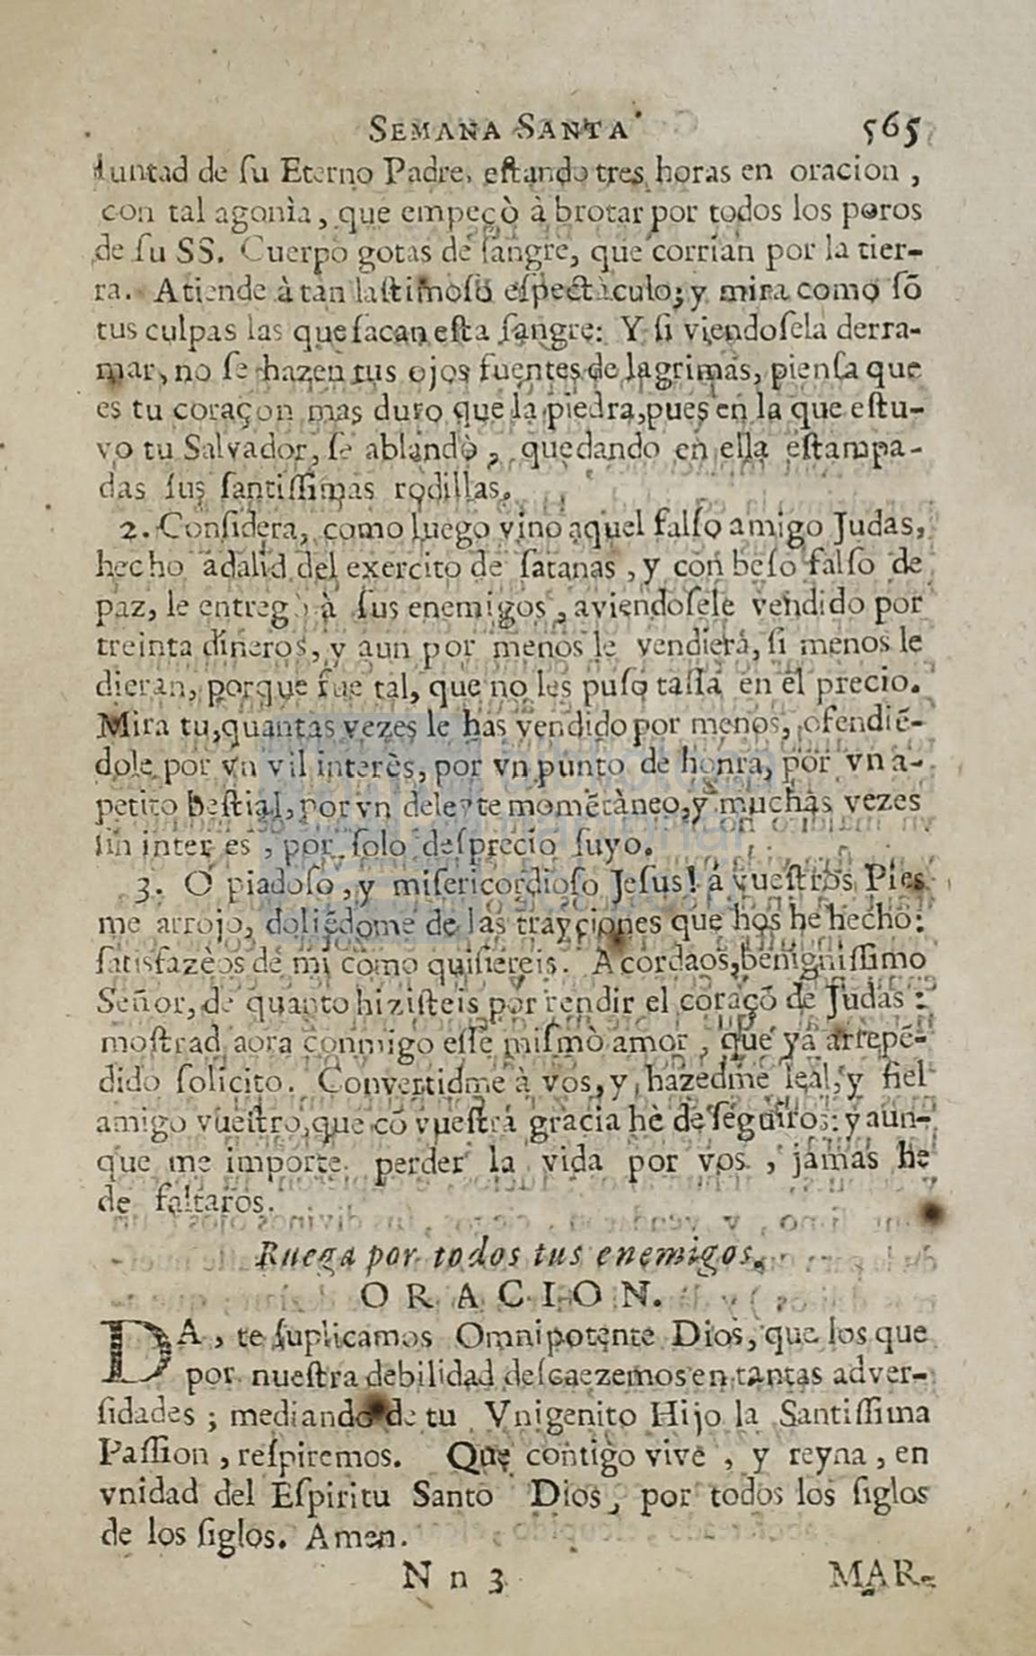 SEMANA SANTA 565
luntad de ſu Eterno Padre, eſtando tres horas en oracion,
con tal agonìa, que empeçò à brotar por todos los poros
de ſu SS. Cuerpo gotas de ſangre, que corrian por la tier-
ra. Atiende à tan laſtimoſo eſpectàculo; y mira como ſõ
tus culpas las que ſacan eſta ſangre: Y ſi viendoſela derra-
mar, no ſe hazen tus ojos fuentes de lagrimas, pienſa que
es tu coraçon mas duro que la piedra, pues en la que eſtu-
vo tu Salvador, ſe ablandò, quedando en ella eſtampa-
das ſus ſantiſſimas rodillas.
2. Conſidera, como luego vino aquel falſo amigo Judas,
hecho adalid del exercito de ſatanas, y con beſo falſo de
paz, le entregò à ſus enemigos, aviendoſele vendido por
treinta dineros, y aun por menos le vendiera, ſi menos le
dieran, porque fue tal, que no les puſo taſſa en el precio.
Mira tu, quantas vezes le has vendido por menos, ofendiẽ-
dole por vn vil interès, por vn punto de honra, por vn a-
petito beſtial, por vn deleyte momẽtàneo, y muchas vezes
ſin interes, por ſolo deſprecio ſuyo.
3. O piadoſo, y miſericordioſo Jeſus! á vueſtros Pies
me arrojo, doliẽdome de las trayciones que hos he hecho:
ſatisfazèos de mi como quiſiereis. Acordaos, benigniſſimo
Señor, de quanto hiziſteis por rendir el coraçõ de Judas:
moſtrad aora conmigo eſſe miſmò amor, que ya arrepẽ-
dido ſolicito. Convertidme à vos, y hazedme leal, y fiel
amigo vueſtro, que cõ vueſtra gracia hè de ſeguiros: y aun-
que me importe perder la vida por vos, jamas he
de faltaros.
Ruega por todos tus enemigos.
ORACION.
DA, te ſuplicamos Omnipotente Dios, que los que
por nueſtra debilidad deſcaezemos en tantas adver-
ſidades; mediando de tu Vnigenito Hijo la Santiſſima
Paſſion, reſpiremos. Que contigo vive, y reyna, en
vnidad del Eſpiritu Santo Dios, por todos los ſiglos
de los ſiglos. Amen.
Nn 3 MAR-